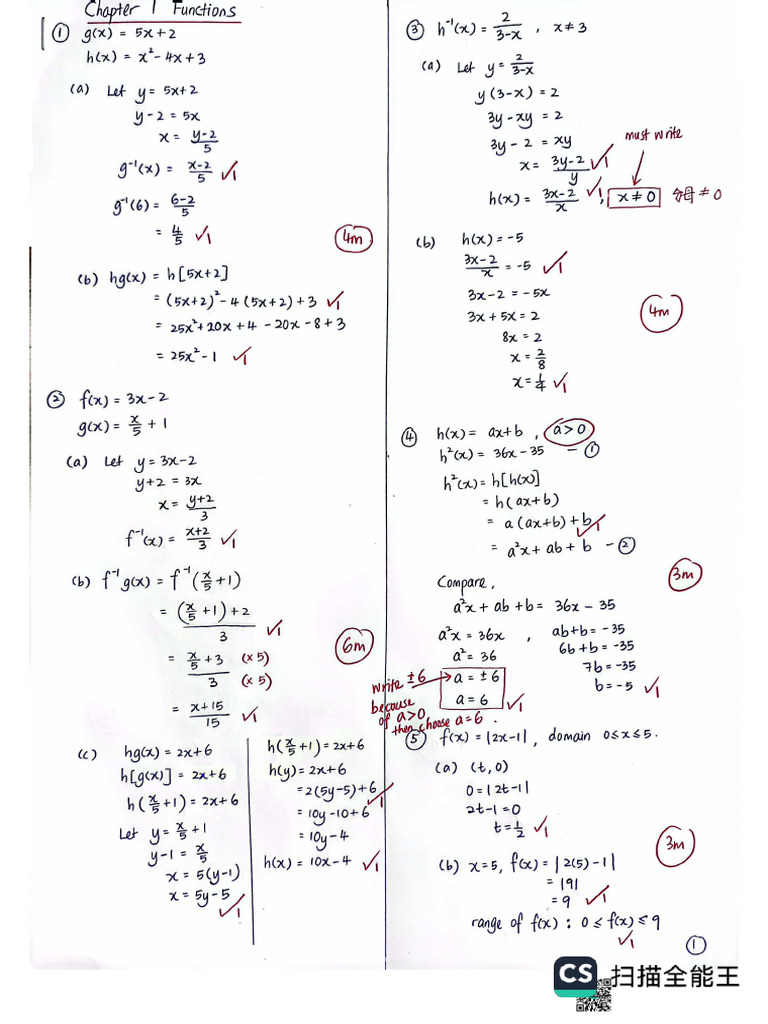 Chapter 1 Functions
① g(x) = 5x+2
h(x) = x² - 4x + 3
(a) Let y = 5x+2
y-2 = 5x
x = (y-2)/5
g⁻¹(x) = (x-2)/5 ✓1
g⁻¹(6) = (6-2)/5
= 4/5 ✓1
4m
(b) hg(x) = h[5x+2]
= (5x+2)² - 4(5x+2) + 3 ✓1
= 25x² + 20x + 4 - 20x - 8 + 3
= 25x² - 1 ✓1
② f(x) = 3x-2
g(x) = x/5 + 1
(a) Let y = 3x-2
y+2 = 3x
x = (y+2)/3
f⁻¹(x) = (x+2)/3 ✓1
(b) f⁻¹g(x) = f⁻¹(x/5 + 1)
= ((x/5 + 1) + 2)/3 ✓1
6m
= (x/5 + 3)/3 (×5) (×5)
= (x+15)/15 ✓1
(c) hg(x) = 2x+6
h[g(x)] = 2x+6
h(x/5 + 1) = 2x+6
Let y = x/5 + 1
y-1 = x/5
x = 5(y-1)
x = 5y-5
✓1
h(x/5 + 1) = 2x+6
h(y) = 2x+6
= 2(5y-5)+6 ✓1
= 10y-10+6
= 10y-4
h(x) = 10x-4 ✓1
③ h⁻¹(x) = 2/(3-x) , x ≠ 3
(a) Let y = 2/(3-x)
y(3-x) = 2
3y-xy = 2
3y-2 = xy
x = (3y-2)/y ✓1
must write
h(x) = (3x-2)/x ✓1, x ≠ 0 分母 ≠ 0
(b) h(x) = -5
(3x-2)/x = -5 ✓1
3x-2 = -5x
4m
3x+5x = 2
8x = 2
x = 2/8
x = 1/4 ✓1
④ h(x) = ax+b , a>0
h²(x) = 36x-35 - ①
h²(x) = h[h(x)]
= h(ax+b)
= a(ax+b)+b ✓1
= a²x + ab + b - ②
3m
Compare,
a²x + ab + b = 36x - 35
a²x = 36x , ab+b = -35
a² = 36
6b+b = -35
a = ±6
7b = -35
a = 6 ✓1
b = -5 ✓1
write ±6
because
of a>0
then choose a=6.
⑤ f(x) = |2x-1| , domain 0≤x≤5.
(a) (t,0)
0 = |2t-1|
2t-1 = 0
t = 1/2 ✓1
3m
(b) x=5, f(x) = |2(5)-1|
= |9|
= 9 ✓1
range of f(x) : 0 ≤ f(x) ≤ 9
✓1
①
CS 扫描全能王